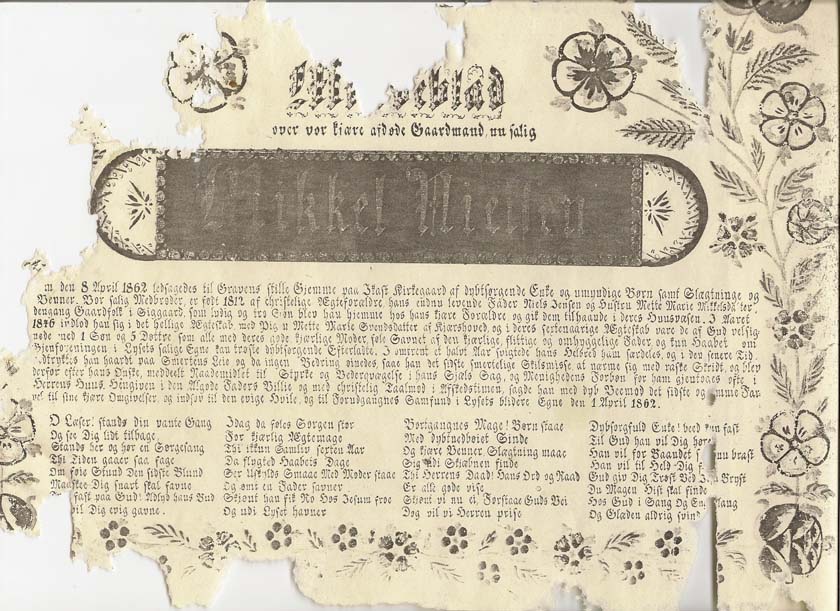 over vor kjære afdøde Gaardmand, nu salig
Mikkel Nielsen
den 8 April 1862 ledsagedes til Gravens stille Gjemme paa Ikast Kirkegaard af dybtsørgende Enke og umyndige Børn samt Slægtninge og
Venner. Vor salig Medbroder, er født 1812 af christelige Ægteforældre, hans endnu levende Fader Niels Jensen og Hustru Mette Marie
dengang Gaardfolk i Siggaard, som lydig og tro Søn blev han hjemme hos hans kjære Forældre og gik dem tilhaande i deres Huusvæsen. I Aaret
1846 indlod han sig i det hellige Ægteskab, med Pig u Mette Marie Svendsdatter af Kjærshoved, og i deres sextenaarige Ægteskab vare de af Gud velsig
nede med 1 Søn og 5 Døttre som alle med deres gode kjærlige Moder, føle Savnet af den kjærlige, flittige og omhyggelige Fader, og kun Haabet om
Gjenforeningen i Lysets salige Egne kan trøste dybtsørgende Efterladte. I omtrent et halvt Aar svigtede hans Helbred ham særdeles, og i den senere Tid
haardt paa Smertens Leie og da ingen Bedring øinedes, sage han det sidste smertelige Skilsmisse at nærme sig med raske Skridt, og blev
derfor efter hans Ønske, meddeelt Naademidlet til Styrke og Vederqvægelse i hans Sjæls Sag, og Menighedens Forbøn for ham gjentoges ofte i
Herrens Huus. Hengiven i den Algode Faders Villie og med christelig Taalmod i Afskedstinen, sagde han med dyb Veemod det sidste og ømme Far
vel til sine kjære Omgivelser, og indsov til den evige Hvile, og til Forudgangnes Samfund i Lysets blidere Egne den 1 April 1862.
O Læser! stands din vante Gang
Og see Dig lidt tilbage
Stands her og hør en Sørgesang
Thi Tiden gaaer saa fage
Om føie Stund Den sidste Blund
Maaskee Dig snart skal favne
fast paa Gud! Adlyd hans Bud
vil Dig evig gavne.
Idag da føles Sorgen stor
For kjærlig Ægtemage
Thi ikkun Samliv sexten Aar
Da flygted Haabets Dage
Sex Uskylds Smaae Med Moder staae
Og ømt en Fader savner
Skjønt han fik Ro Hos Jesum froe
Og udi Lyset havner
Bortgangnes Mage! Børn staae
Med dybnedbøiet Sinde
Og kjære Venner Slægtning maae
Sig udi Skjæbnen finde
Thi Herrens Daad! Hans Ord og Raad
Er alt gode vise
Skjønt vi nu ei Forstaae Guds Vei
Dog vil vi Herren prise
Dybsorgfuld Enke! beed kun fast
Til Gud han vil Dig høre
Han vil for Baandet som brast
Han vil til Held Dig
Gud giv Dig Trøst Ved Bryst
Du Magen Hist skal finde
Hos Gud i Sang Og
Og Glæden aldrig